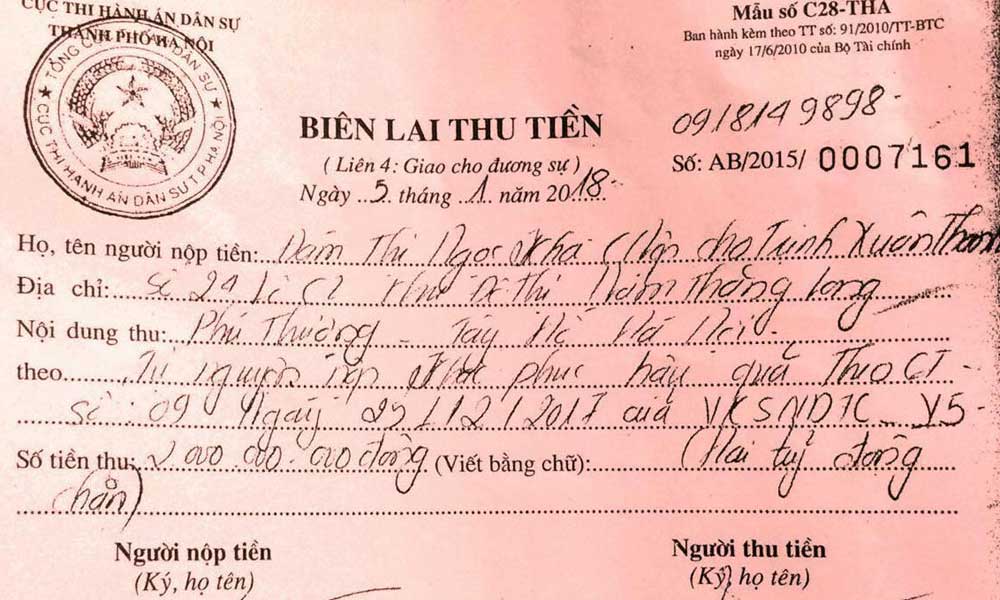 CỤC THI HÀNH ÁN DÂN SỰ
THÀNH PHỐ HÀ NỘI
Mẫu số C28-THA
Ban hành kèm theo TT số: 91/2010/TT-BTC
ngày 17/6/2010 của Bộ Tài chính
TỔNG CỤC DÂN SỰ
CỤC THI HÀNH ÁN DÂN SỰ T.P HÀ NỘI
BIÊN LAI THU TIỀN
0918149898
(Liên 4: Giao cho đương sự)
Số: AB/2015/ 0007161
Ngày 5 tháng 1 năm 2018
Họ, tên người nộp tiền: Đàm Thị Ngọc Kha (Nộp cho Trịnh Xuân Thanh
Địa chỉ: Số 24 lô C1 Khu Đô Thị Nam Thăng Long
Nội dung thu: Phú Thượng - Tây Hồ Hà Nội
theo Tự nguyện nộp khắc phục hậu quả Theo CT
số 09 Ngày 25/12/2017 của VKSNDTC V5
Số tiền thu: 2 000.000.000 đồng (Viết bằng chữ): (Hai tỷ đồng
chẵn)
Người nộp tiền
Người thu tiền
(Ký, họ tên)
(Ký, họ tên)